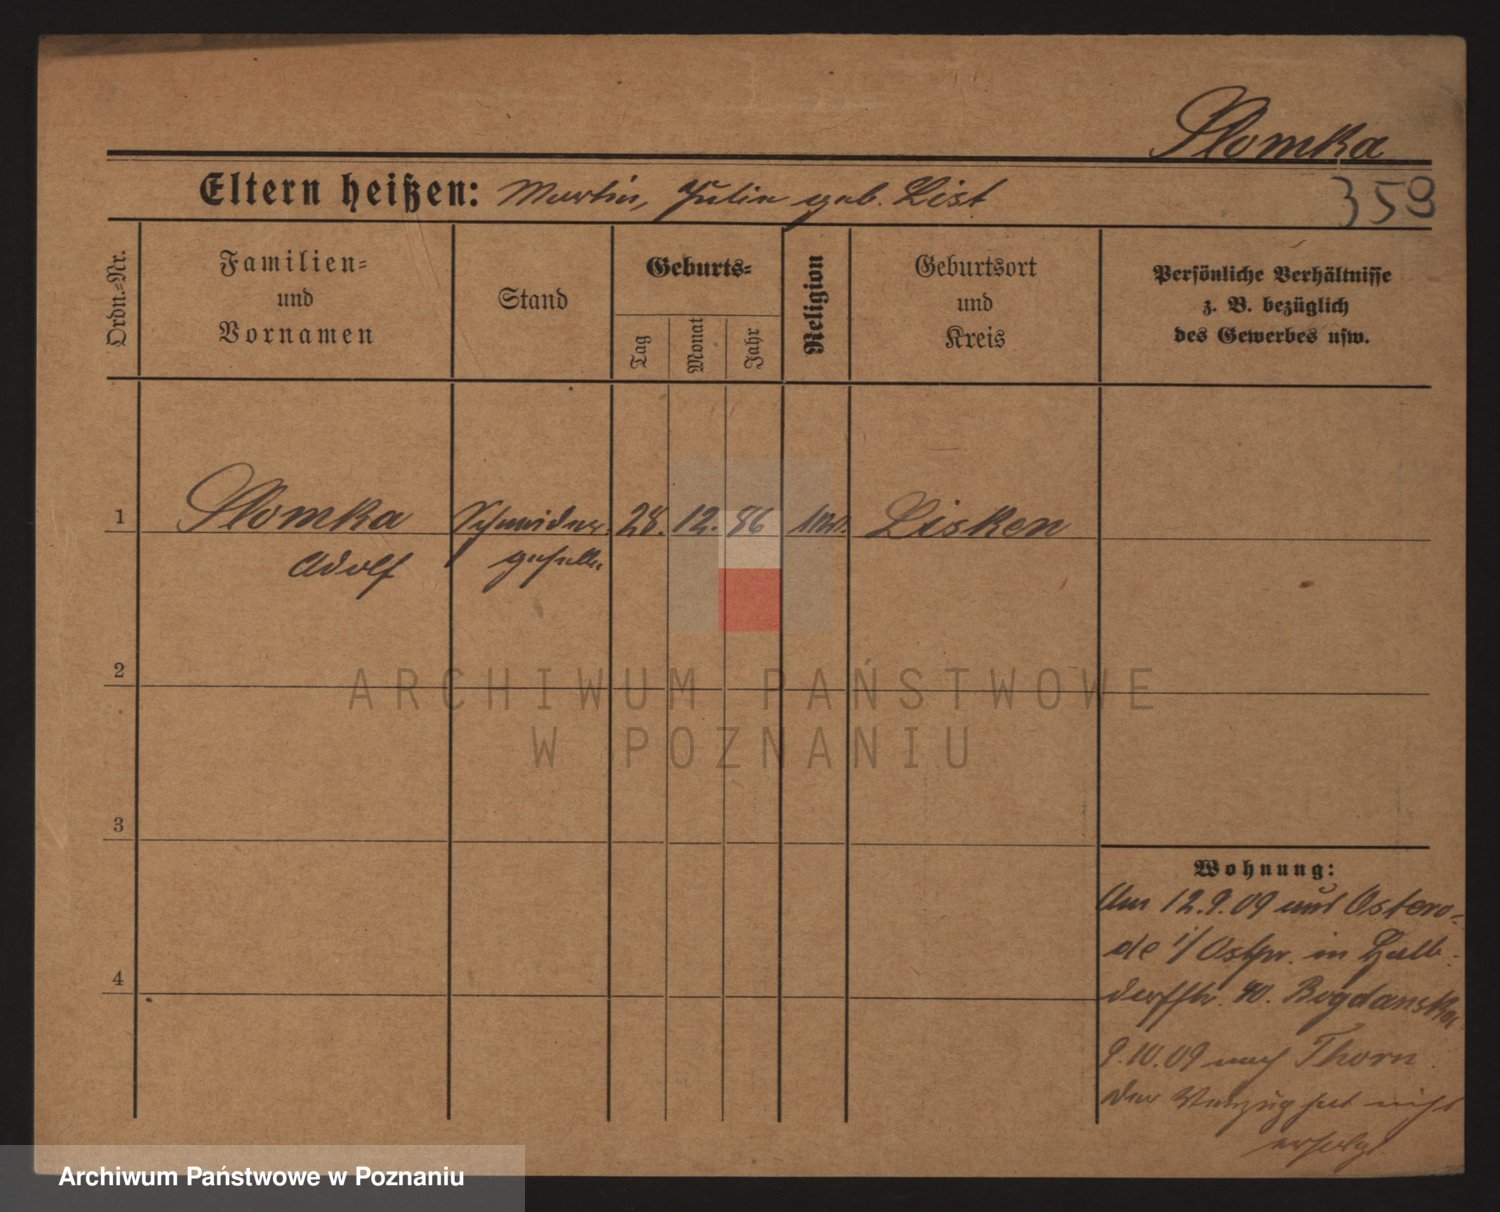 Slomka
Eltern heißen: Martin, Julie geb. List
359
Ordn.-Nr.
Familien-
und
Vornamen
Stand
Geburts-
Tag
Monat
Jahr
Religion
Geburtsort
und
Kreis
Persönliche Verhältnisse
z. B. bezüglich
des Gewerbes usw.
1
Slomka
Adolf
Schneider-
geselle
28. 12. 86
Lisken
2
ARCHIWUM PAŃSTWOWE
W POZNANIU
3
4
Wohnung:
Am 12.9.09 aus Ostero-
de i/Ostpr. in Halb-
dorfstr. 40. Bogdanska
9.10.09 nach Thorn.
Der Verzug hat nicht
erfolgt
Archiwum Państwowe w Poznaniu